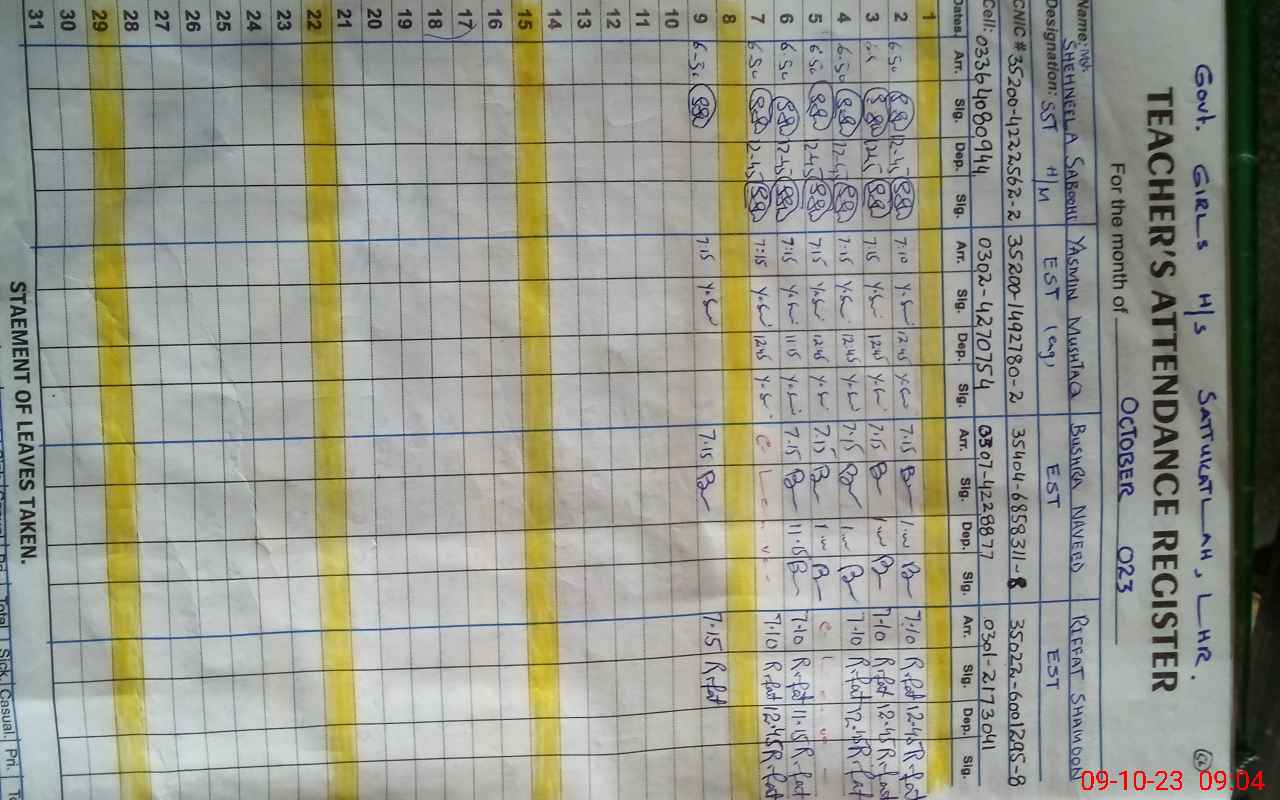 Govt. GIRLS H/S SATTUKATLAH, LHR.
TEACHER'S ATTENDANCE REGISTER
For the month of OCTOBER 023
Name: SHEHNEELA SABOOHI YASMIN MUSHTAQ BUSHRA NAVEED RIFFAT SHAMOON
Designation: SST H/M EST (eng) EST EST
CNIC # 35200-4222562-2 35200-1492780-2 35404-6858311-8 35022-6001295-8
Cell: 03364080944 0302-4270754 0307-4228877 0301-2173041
Dates Arr. Sig. Dep. Sig. Arr. Sig. Dep. Sig. Arr. Sig. Dep. Sig. Arr. Sig. Dep. Sig.
1
2 6 50 12-45 7:10 12 45 7.15 7.10 R-fat 12-45 R-fat
3 1245 7:15 1245 7.15 7.10 R-fat 12.45 R-fat
4 6-50 12-45 7:15 12.45 7.15 7.10 R-fat 12.45 R-fat
5 6 50 1245 7:15 12.45 7.15
6 6 50 12-45 7:15 11 15 7.15 11.15 7.10 R-fat 11.15 R-fat
7 6 50 12-45 7:15 1245 7.10 R-fat 12.45 R-fat
8
9 6-50 7:15 7.15 7.15 R-fat
10
11
12
13
14
15
16
17
18
19
20
21
22
23
24
25
26
27
28
29
30
31
STAEMENT OF LEAVES TAKEN.
Total Sick. Casual. Pri.
09-10-23 09:04